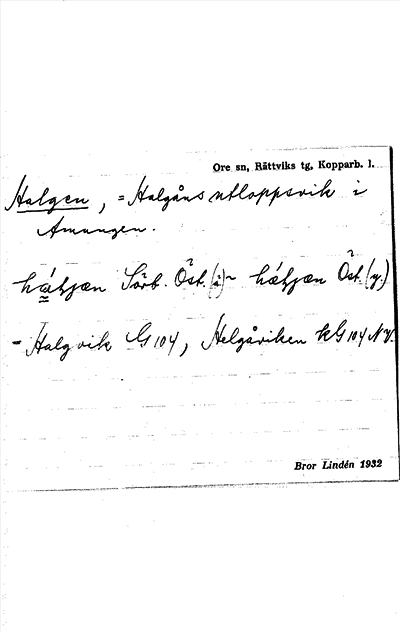 Ore sn, Rättviks tg, Kopparb. l.
Halgen, = Halgåns utloppsvik i
Amungen.
Sörb. Öst. ~ Öst. (y.)
= Halgvik G 104, Helgåviken kG 104 NV.
Bror Lindén 1932